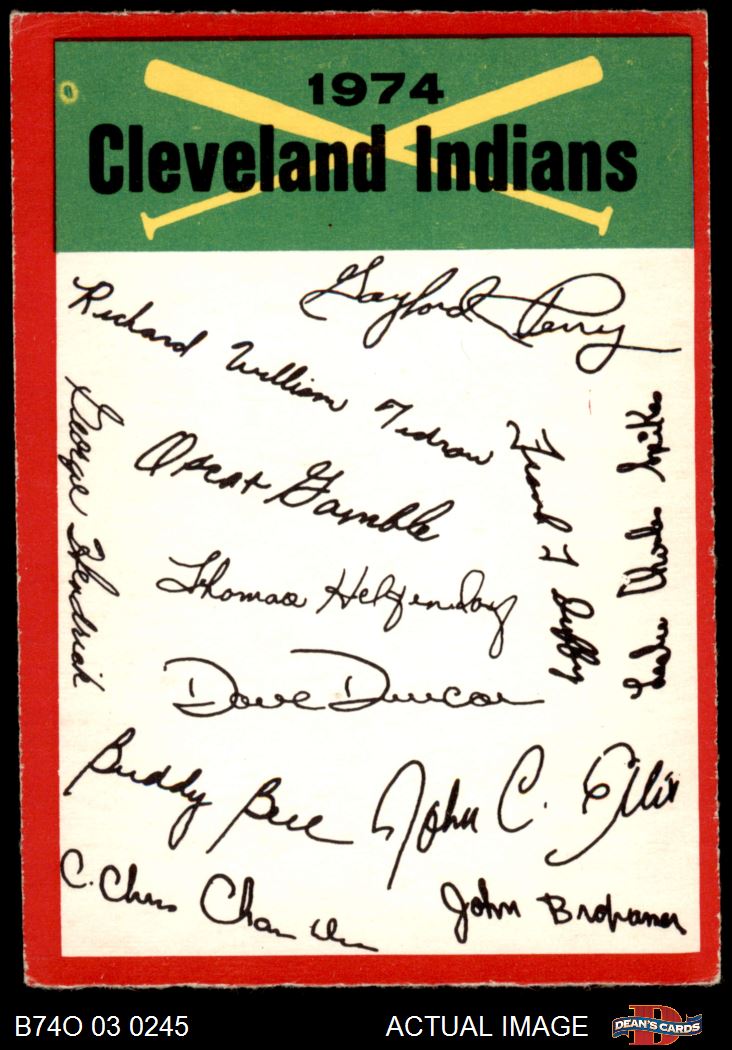 1974
Cleveland Indians
Gaylord Perry
Richard William Tidrow
George Hendrick
Oscar Gamble
Frank T Duffy
Leslie Charles Spikes
Thomas Helgendorf
Dave Duncan
Buddy Bell
John C. Ellis
C. Chris Chambliss
John Brohamer
B74O 03 0245
ACTUAL IMAGE
D
DEAN'S CARDS